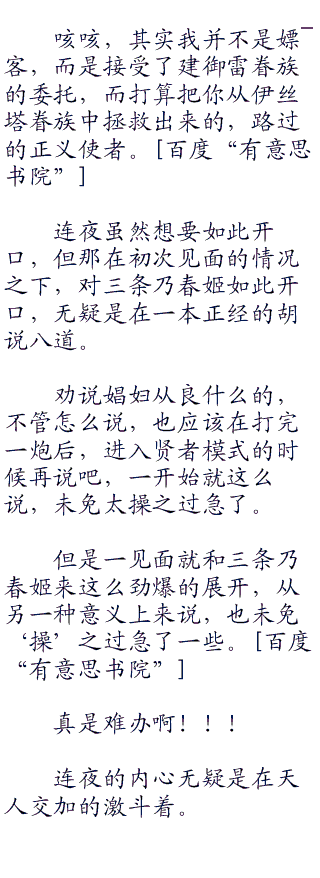 咳咳，其实我并不是嫖
客，而是接受了建御雷眷族
的委托，而打算把你从伊丝
塔眷族中拯救出来的，路过
的正义使者。[百度“有意思
书院”]
连夜虽然想要如此开
口，但那在初次见面的情况
之下，对三条乃春姬如此开
口，无疑是在一本正经的胡
说八道。
劝说娼妇从良什么的，
不管怎么说，也应该在打完
一炮后，进入贤者模式的时
候再说吧，一开始就这么
说，未免太操之过急了。
但是一见面就和三条乃
春姬来这么劲爆的展开，从
另一种意义上来说，也未免
‘操’之过急了一些。[百度
“有意思书院”]
真是难办啊！！！
连夜的内心无疑是在天
人交加的激斗着。